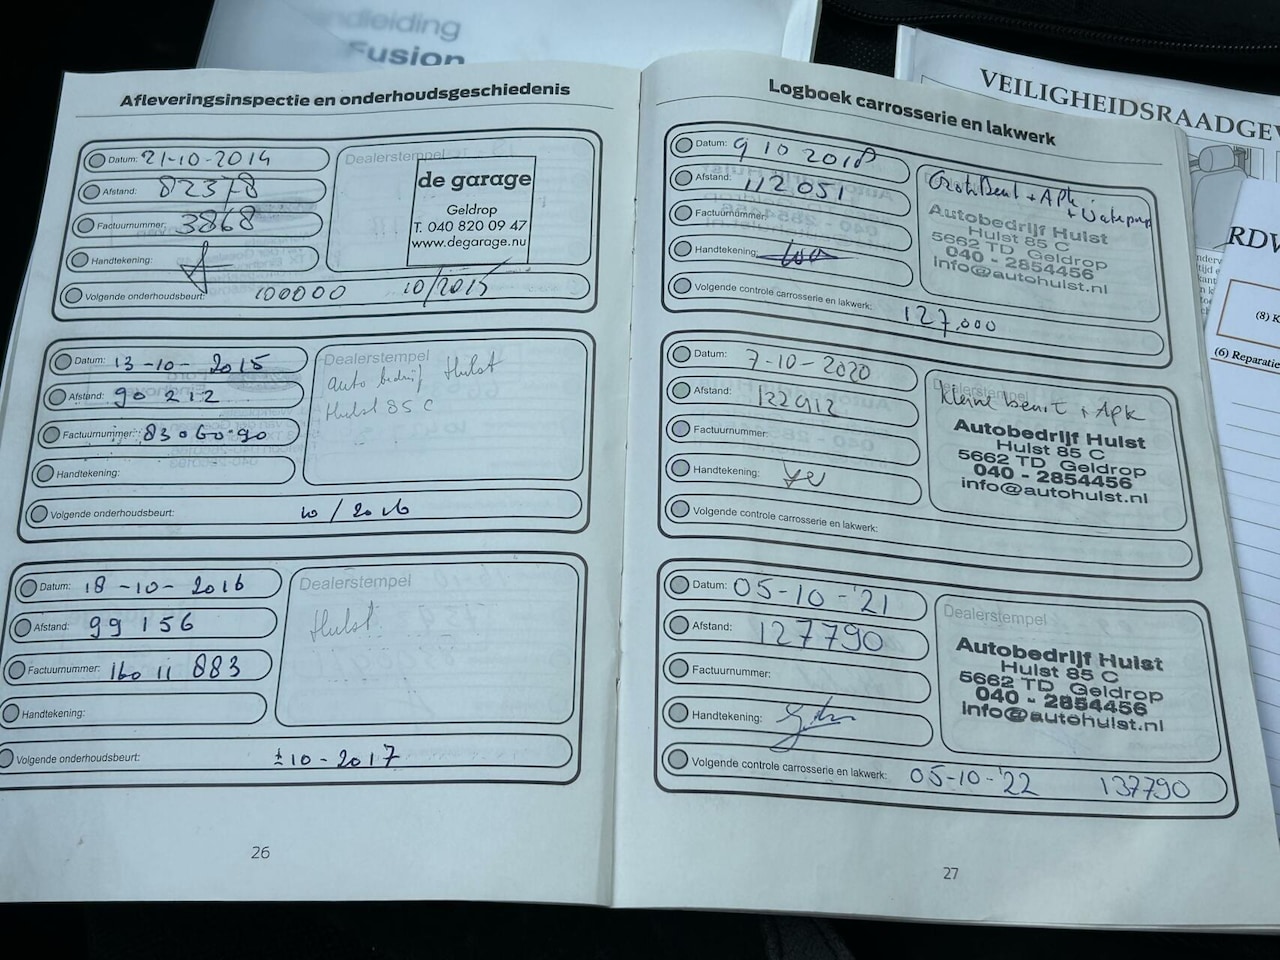 ndleiding
Fusion
VEILIGHEIDSRAADGEV
RDW
(8) K
(6) Reparatie
Afleveringsinspectie en onderhoudsgeschiedenis
Datum: 21-10-2014
Afstand: 82378
Factuurnummer: 3868
Handtekening:
Volgende onderhoudsbeurt: 100000 10/2015
Dealerstempel
de garage
Geldrop
T. 040 820 09 47
www.degarage.nu
Datum: 13-10-2015
Afstand: 90212
Factuurnummer: 83060.90
Handtekening:
Volgende onderhoudsbeurt: 10/2016
Dealerstempel
auto bedrijf Hulst
Hulst 85 C
Datum: 18-10-2016
Afstand: 99156
Factuurnummer: 160 11 883
Handtekening:
Volgende onderhoudsbeurt: ± 10-2017
Dealerstempel
Hulst
26
Logboek carrosserie en lakwerk
Datum: 9 10 2018
Afstand: 112051
Factuurnummer:
Handtekening:
Volgende controle carrosserie en lakwerk: 127.000
+ Apk
Autobedrijf Hulst
Hulst 85 C
5662 TD Geldrop
040 - 2854456
info@autohulst.nl
Datum: 7-10-2020
Afstand: 122912
Factuurnummer:
Handtekening:
Volgende controle carrosserie en lakwerk:
Dealerstempel
Kleine beurt + Apk
Autobedrijf Hulst
Hulst 85 C
5662 TD Geldrop
040 - 2854456
info@autohulst.nl
Datum: 05-10-'21
Afstand: 127790
Factuurnummer:
Handtekening:
Volgende controle carrosserie en lakwerk: 05-10-'22 137790
Dealerstempel
Autobedrijf Hulst
Hulst 85 C
5662 TD Geldrop
040 - 2854456
info@autohulst.nl
27